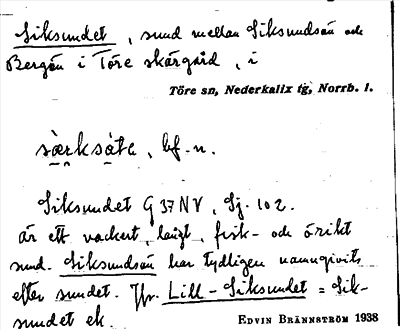 Siksundet, sund mellan Siksundsön och
Bergön i Töre skärgård, i
Töre sn, Nederkalix tg, Norrb. l.
bf. n.
Siksundet G 37 NV, Sj. 102.
är ett vackert, långt, fisk- och örikt
sund. Siksundsön har tydligen namngivits
efter sundet. Jfr. Lill-Siksundet = Sik-
sundet ek.
EDVIN BRÄNNSTRÖM 1938